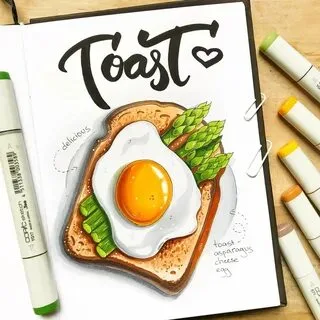 Toast
delicious
toast
asparagus
cheese
egg
COPIC sketch